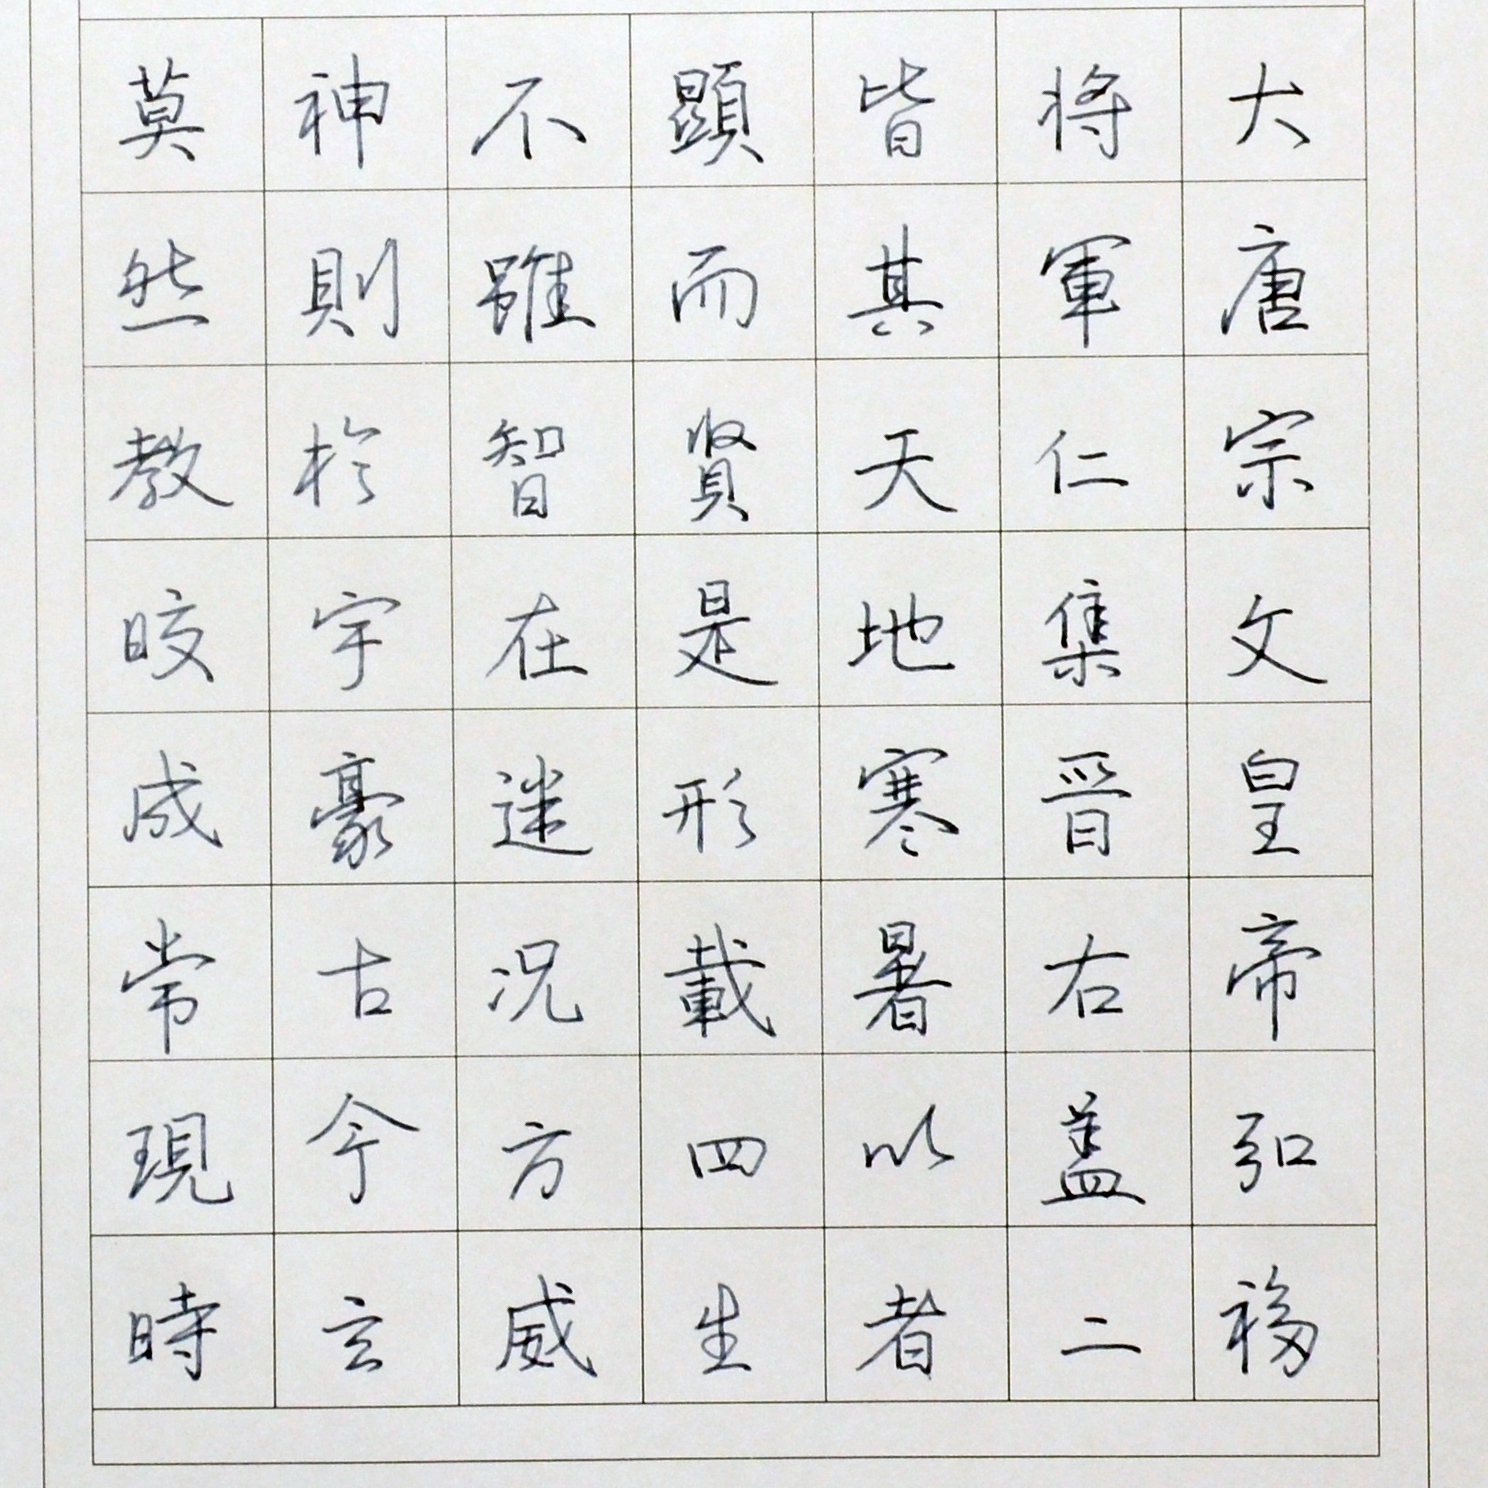 大唐宗文皇帝弘福
将軍仁集晉右蓋二
皆其天地寒暑以者
顕而賢是形載四生
不雖智在迷况方威
神則於宇豪古今玄
莫然教晈成常現時